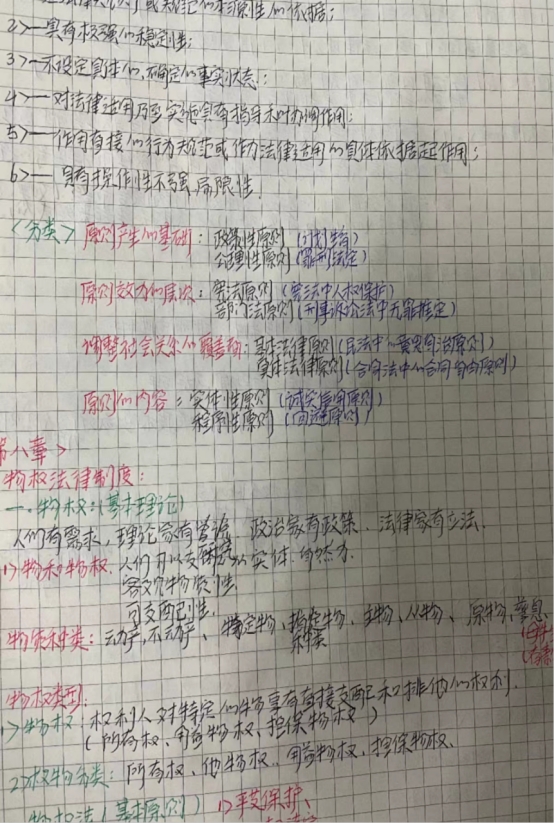 2>一具有较强的稳定性;
3>一不设定具体的、确定的事实状态;
4>一对法律适用乃至实施具有指导和协调作用;
5>一作用直接的行为规范或作为法律适用的具体依据起作用;
6>一具有操作性不强,局限性.
<分类> 原则产生的基础: 政策性原则 (计划生育)
公理性原则 (罪刑法定)
原则效力的层次: 宪法原则 (宪法中人权保护)
部门法原则 (刑事诉讼法中无罪推定)
调整社会关系的覆盖面: 基本法律原则 (民法中 意思自治原则)
具体法律原则 (合同法中的合同自由原则)
原则的内容: 实体性原则 (诚实信用原则)
程序性原则 (回避原则)
第八章>
物权法律制度:
一.物权:(基本理论)
人们有需求,理论家有 政治家有政策.法律家有立法.
1>物和物权.人们可以支配 实体.自然力.
客观物质性
可支配性.
物质种类: 动产,不动产、特定物、种类物、主物、从物、原物、孳息
物权类型:
1>物权:权利人对特定的物享有直接支配和排他的权利.
(所有权、用益物权、担保物权)
2>权物分类:所有权、他物权、用益物权、担保物权、
物权法(基本原则) 1>平等保护、